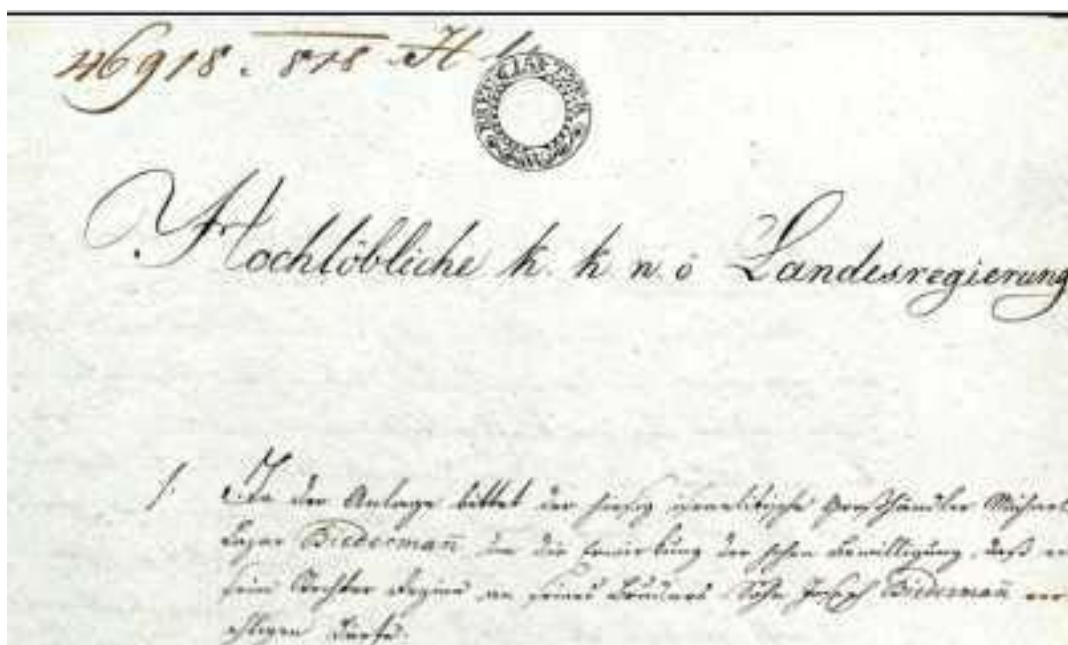 46918. 818
Hochlöbliche k. k n. ö Landesregierung
1. In der Anlage bittet der hiesig israelitische Großhändler Michael
Lazar Biederman̄ um die Erwirkung der hohen Bewilligung, daß er
seine Tochter Regina an seines Bruders Sohn Joseph Biederman̄ ver¬
ehligen dürfe.